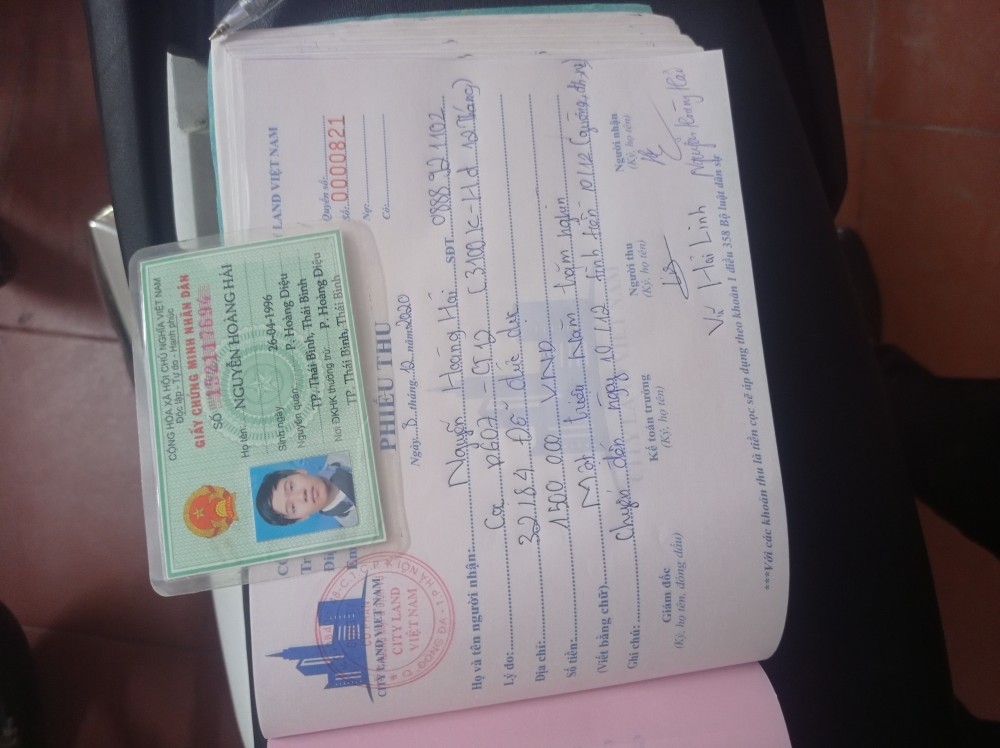 CỘNG HÒA XÃ HỘI CHỦ NGHĨA VIỆT NAM
Độc lập - Tự do - Hạnh phúc
GIẤY CHỨNG MINH NHÂN DÂN
SỐ
Họ tên: NGUYỄN HOÀNG HẢI
Sinh ngày: 26-04-1996
Nguyên quán: P. Hoàng Diệu
TP. Thái Bình, Thái Bình
Nơi ĐKHK thường trú: P. Hoàng Diệu
TP. Thái Bình, Thái Bình
CITY LAND VIỆT NAM
LAND VIỆT NAM
Quyển số:
Số: 0000821
Nợ:
Có:
CITY LAND
VIỆT NAM
PHIẾU THU
Ngày 8 tháng 12 năm 2020
Họ và tên người nhận: Nguyễn Hoàng Hải SĐT 0888921102
Lý do: Cọc P602 - CT12 (3100K - Hđ 12 tháng)
Địa chỉ: 32/84 Đỗ đức dục
Số tiền: 1500.000 VNĐ
(Viết bằng chữ) Một triệu năm trăm nghìn
Ghi chú: chuyển đến ngày 10/12 tính tiền 10/12
Giám đốc
(Ký, họ tên, đóng dấu)
Kế toán trưởng
(Ký, họ tên)
Người thu
(Ký, họ tên)
Người nhận
(Ký, họ tên)
Vũ Hải Linh
Nguyễn Hoàng Hải
***Với các khoản thu là tiền cọc sẽ áp dụng theo khoản 1 điều 358 Bộ luật dân sự